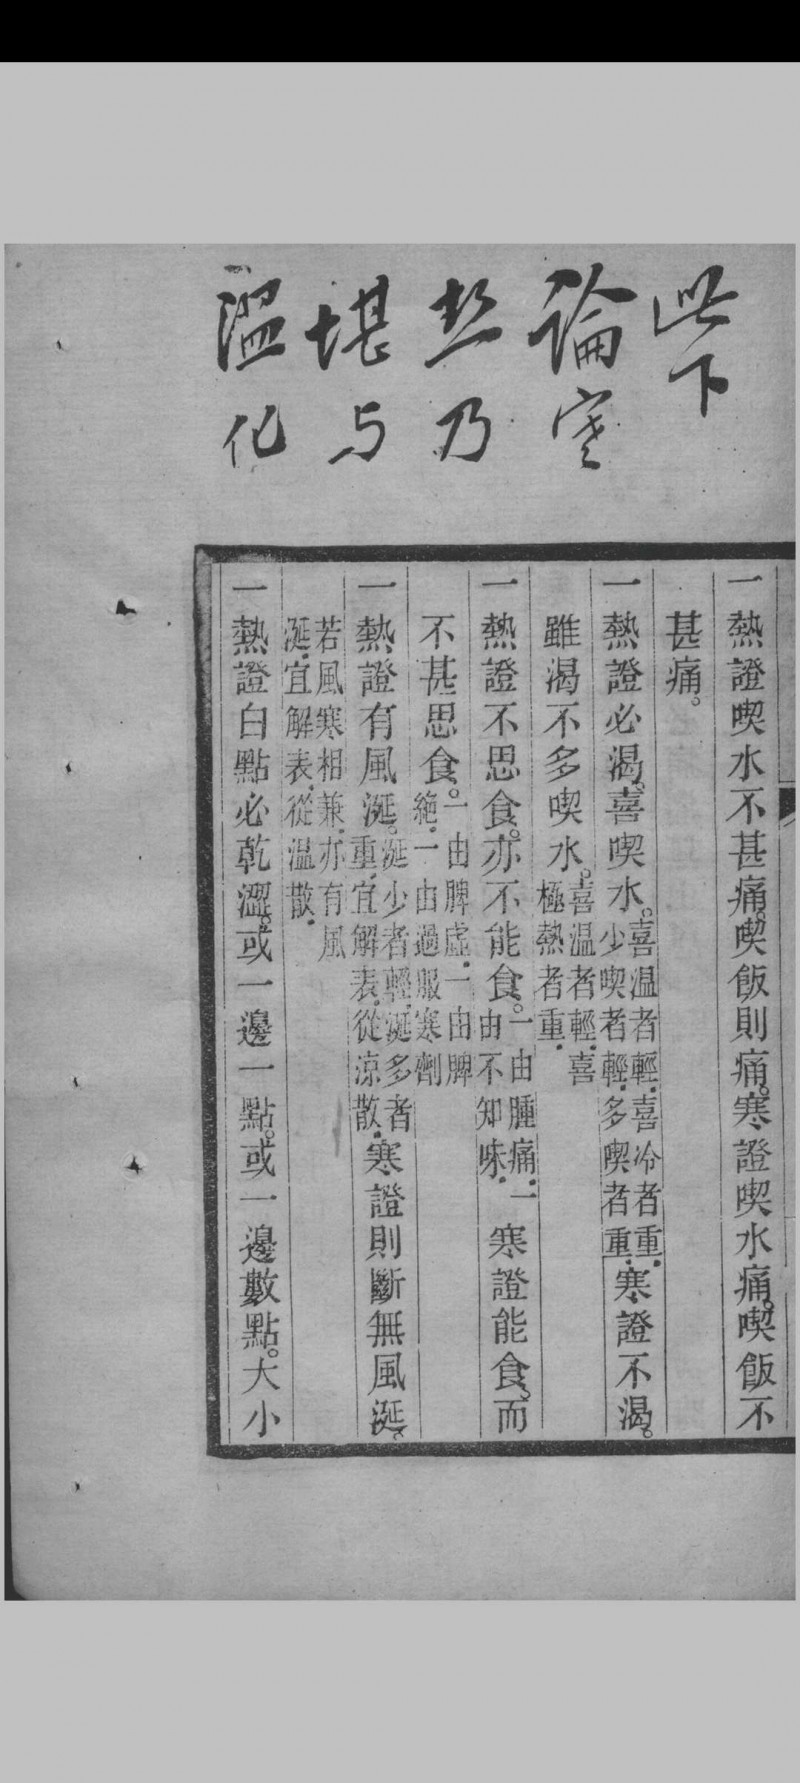 此下
論寒
熱乃
堪与
温化
一熱證喫水不甚痛。喫飯則痛。寒證喫水痛。喫飯不
甚痛。
一熱證必渴。喜喫水。喜温者輕。喜冷者重。少喫者輕。多喫者重。寒證不渴。
雖渴不多喫水。喜温者輕。喜極熱者重。
一熱證不思食。亦不能食。一由腫痛。一由不知味。寒證能食。而
不甚思食。一由脾虛。一由脾絕。一由過服寒劑
一熱證有風涎。涎少者輕。涎多者重。宜解表。從涼散。寒證則斷無風涎。
若風寒相兼。亦有風涎。宜解表。從温散。
一熱證白點必乾澀。或一邊一點。或一邊數點。大小